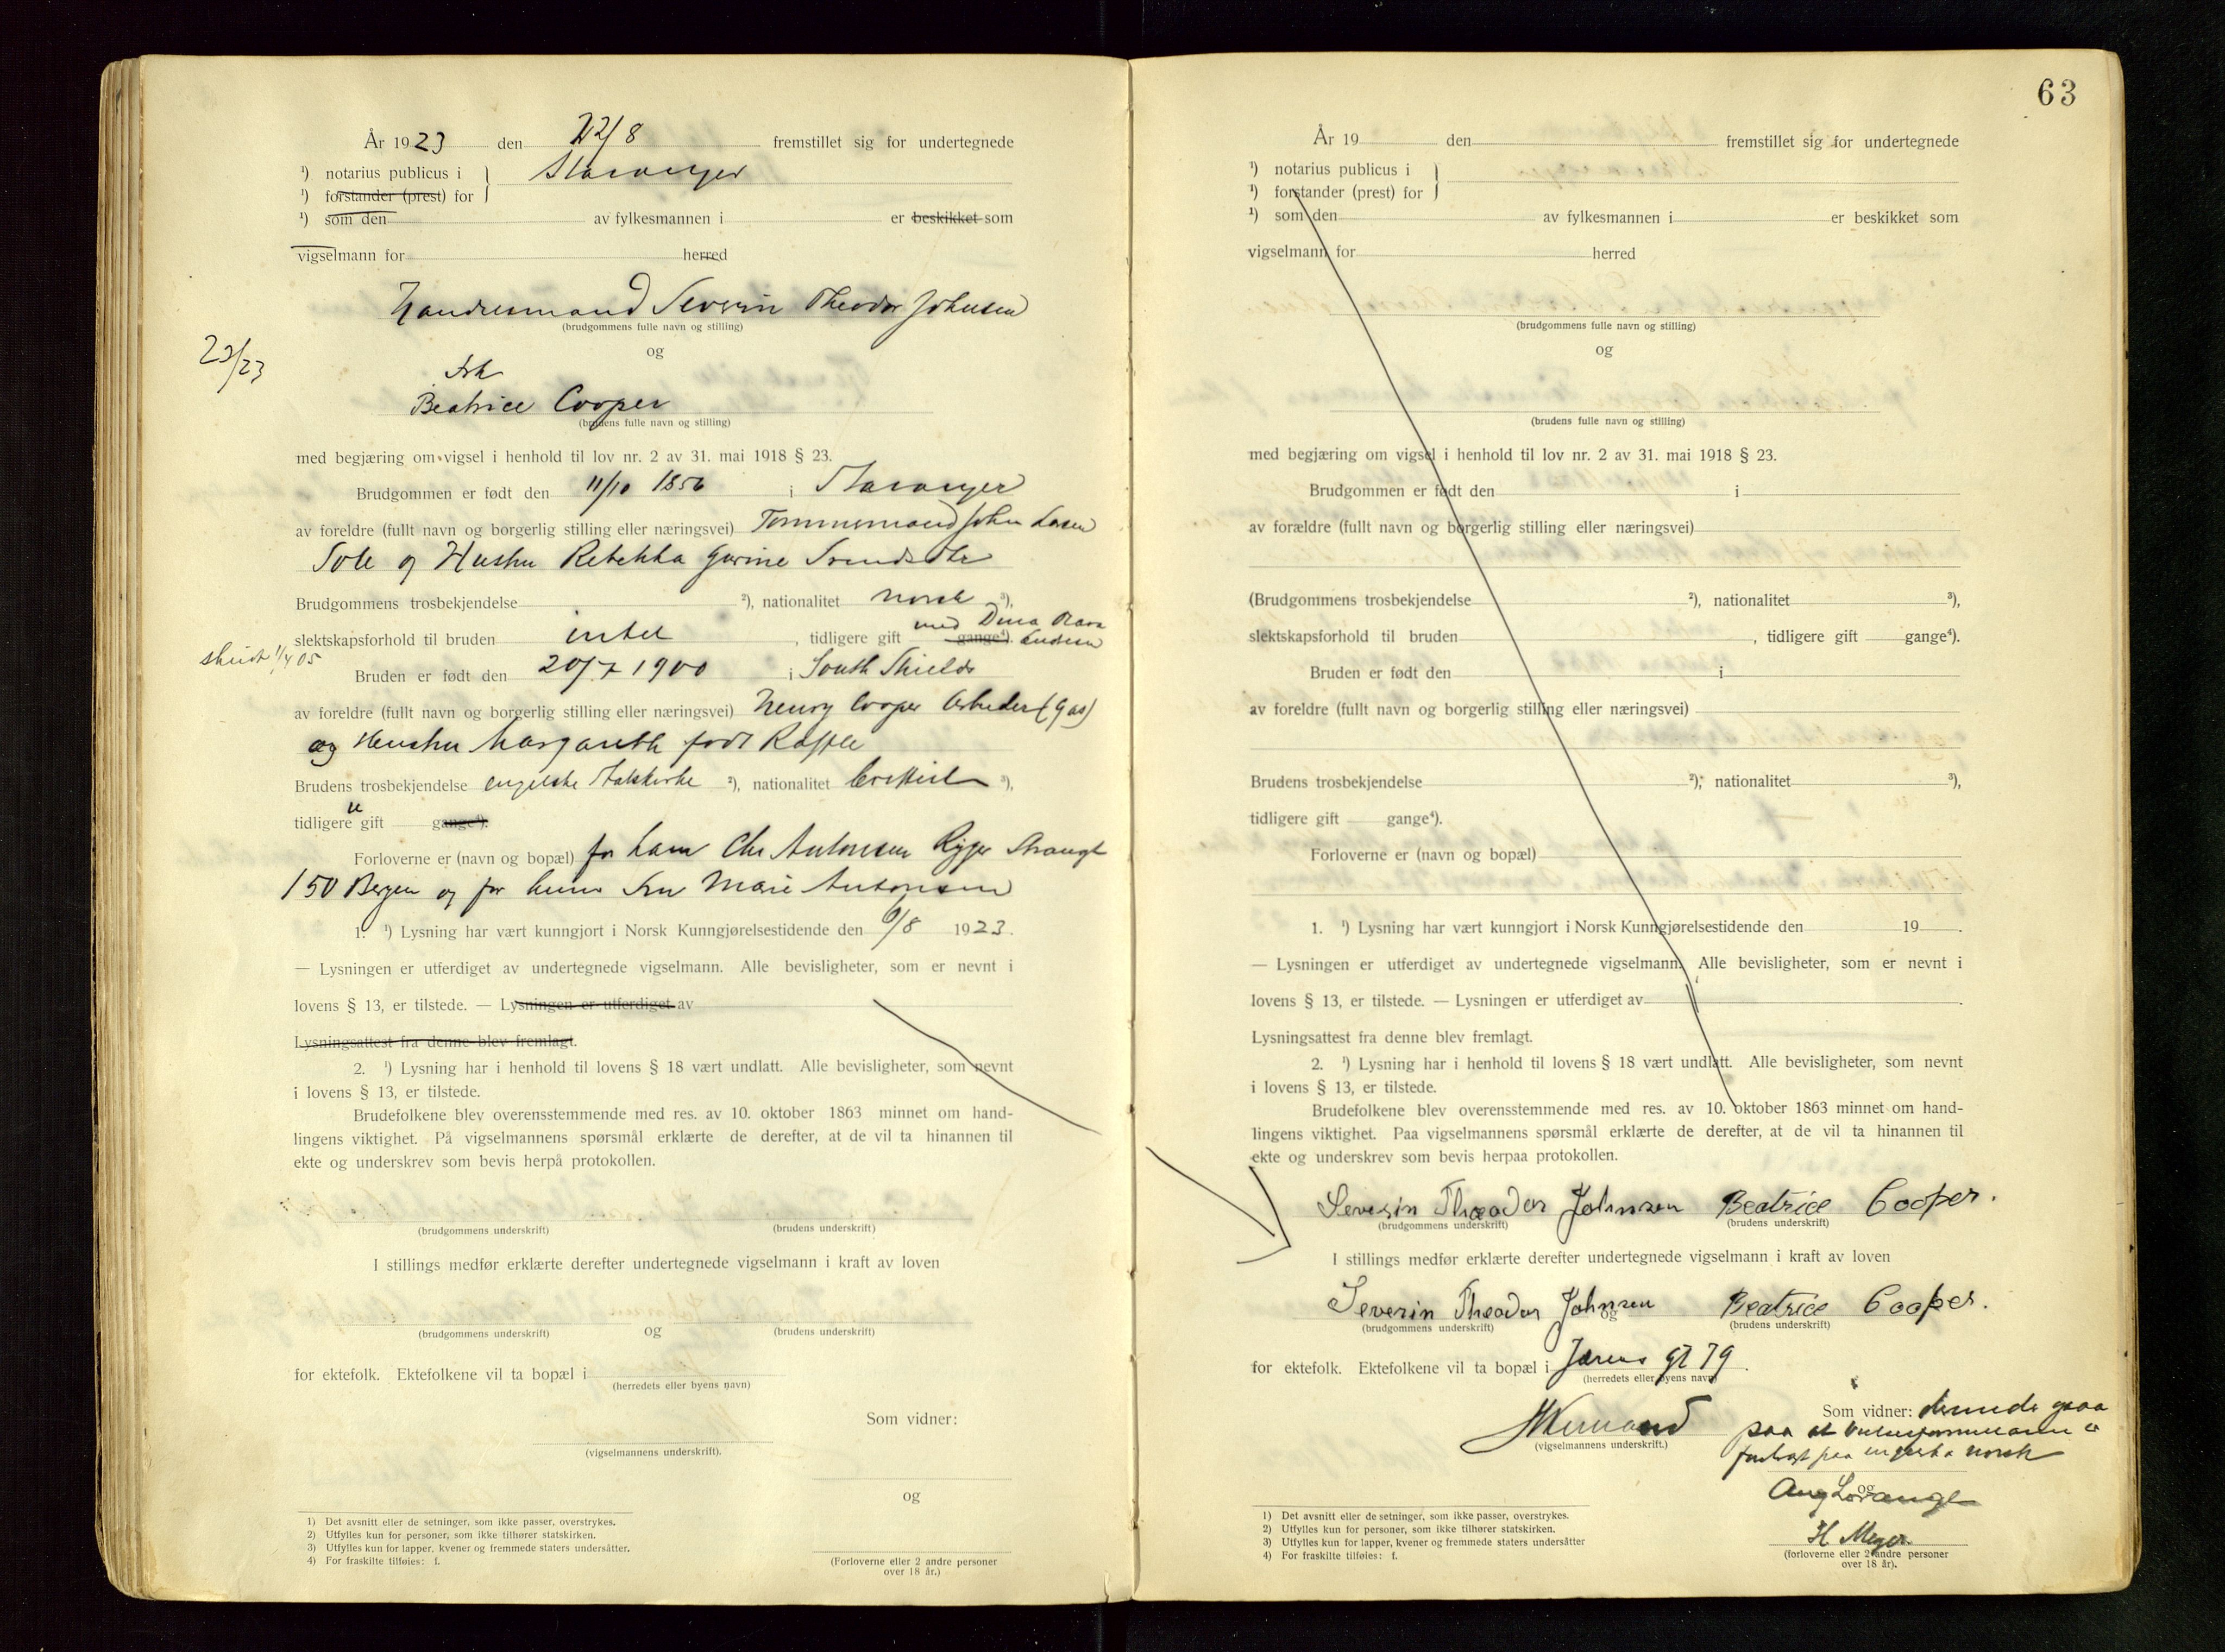 År 1923 den 22/8 fremstillet sig for undertegnede
¹) notarius publicus i } Stavanger
¹) forstander (prest) for
¹) som den av fylkesmannen i er beskikket som
vigselmann for herred
Handelsmand Severin Theodor Johnsen
(brudgommens fulle navn og stilling)
og
23/23
Frk
Beatrice Cooper
(brudens fulle navn og stilling)
med begjæring om vigsel i henhold til lov nr. 2 av 31. mai 1918 § 23.
Brudgommen er født den 11/10 1856 i Stavanger
av foreldre (fullt navn og borgerlig stilling eller næringsvei) Tømmermand John Lasen
Sole og Hustru Rebekka Gurine Svendsdtr
Brudgommens trosbekjendelse ²), nationalitet norsk ³),
slektskapsforhold til bruden intet , tidligere gift gange⁴). med Dina
skilt 11/4 05
Bruden er født den 20/7 1900 i South Shields
av foreldre (fullt navn og borgerlig stilling eller næringsvei) Henry Cooper Arbeider (Gas)
og Hustru Margareth født
Brudens trosbekjendelse engelske Statskirke ²), nationalitet brittisk ³),
tidligere gift gange⁴).
Forloverne er (navn og bopæl) for ham Chr Antonsen Rigger Strangt
150 Bergen og for hende Fru Marie Antonsen
1. ¹) Lysning har vært kunngjort i Norsk Kunngjørelsestidende den 6/8 1923.
— Lysningen er utferdiget av undertegnede vigselmann. Alle bevisligheter, som er nevnt i
lovens § 13, er tilstede. — Lysningen er utferdiget av
Lysningsattest fra denne blev fremlagt.
2. ¹) Lysning har i henhold til lovens § 18 vært undlatt. Alle bevisligheter, som nevnt
i lovens § 13, er tilstede.
Brudefolkene blev overensstemmende med res. av 10. oktober 1863 minnet om hand-
lingens viktighet. På vigselmannens spørsmål erklærte de derefter, at de vil ta hinannen til
ekte og underskrev som bevis herpå protokollen.
(brudgommens underskrift) (brudens underskrift)
I stillings medfør erklærte derefter undertegnede vigselmann i kraft av loven
og
(brudgommens underskrift) (brudens underskrift)
for ektefolk. Ektefolkene vil ta bopæl i
(herredets eller byens navn)
Som vidner:
(vigselmannens underskrift).
og
1) Det avsnitt eller de setninger, som ikke passer, overstrykes.
2) Utfylles kun for personer, som ikke tilhører statskirken.
3) Utfylles kun for lapper, kvener og fremmede staters undersåtter.
4) For fraskilte tilføies: f.
(Forloverne eller 2 andre personer
over 18 år.)
63
År 19 den fremstillet sig for undertegnede
¹) notarius publicus i }
¹) forstander (prest) for
¹) som den av fylkesmannen i er beskikket som
vigselmann for herred
(brudgommens fulle navn og stilling)
og
(brudens fulle navn og stilling)
med begjæring om vigsel i henhold til lov nr. 2 av 31. mai 1918 § 23.
Brudgommen er født den i
av forældre (fullt navn og borgerlig stilling eller næringsvei)
(Brudgommens trosbekjendelse ²), nationalitet ³),
slektskapsforhold til bruden , tidligere gift gange⁴).
Bruden er født den i
av foreldre (fullt navn og borgerlig stilling eller næringsvei)
Brudens trosbekjendelse ²); nationalitet ³),
tidligere gift gange⁴).
Forloverne er (navn og bopæl)
1. ¹) Lysning har vært kunngjort i Norsk Kunngjørelsestidende den 19 .
— Lysningen er utferdiget av undertegnede vigselmann. Alle bevisligheter, som er nevnt i
lovens § 13, er tilstede. — Lysningen er utferdiget av .
Lysningsattest fra denne blev fremlagt.
2. ¹) Lysning har i henhold til lovens § 18 vært undlatt. Alle bevisligheter, som nevnt
i lovens § 13, er tilstede.
Brudefolkene blev overensstemmende med res. av 10. oktober 1863 minnet om hand-
lingens viktighet. Paa vigselmannens spørsmål erklærte de derefter, at de vil ta hinannen til
ekte og underskrev som bevis herpaa protokollen.
Severin Theodor Johnsen Beatrice Cooper.
(brudgommens underskrift) (brudens underskrift)
I stillings medfør erklærte derefter undertegnede vigselmann i kraft av loven
Severin Theodor Johnsen og Beatrice Cooper.
(brudgommens underskrift) (brudens underskrift)
for ektefolk. Ektefolkene vil ta bopæl i Jærens gt 79.
(herredets eller byens navn)
Som vidner:
paa at er
paa norsk
(vigselmannens underskrift.)
og
Aug Lorange
H Meyer.
1) Det avsnitt eller de setninger, som ikke passer, overstrykes.
2) Utfylles kun for personer, som ikke tilhører statskirken.
3) Utfylles kun for lapper, kvener og fremmede staters undersåtter
4) For fraskilte tilføies: f.
(forloverne eller 2 andre personer
over 18 år).